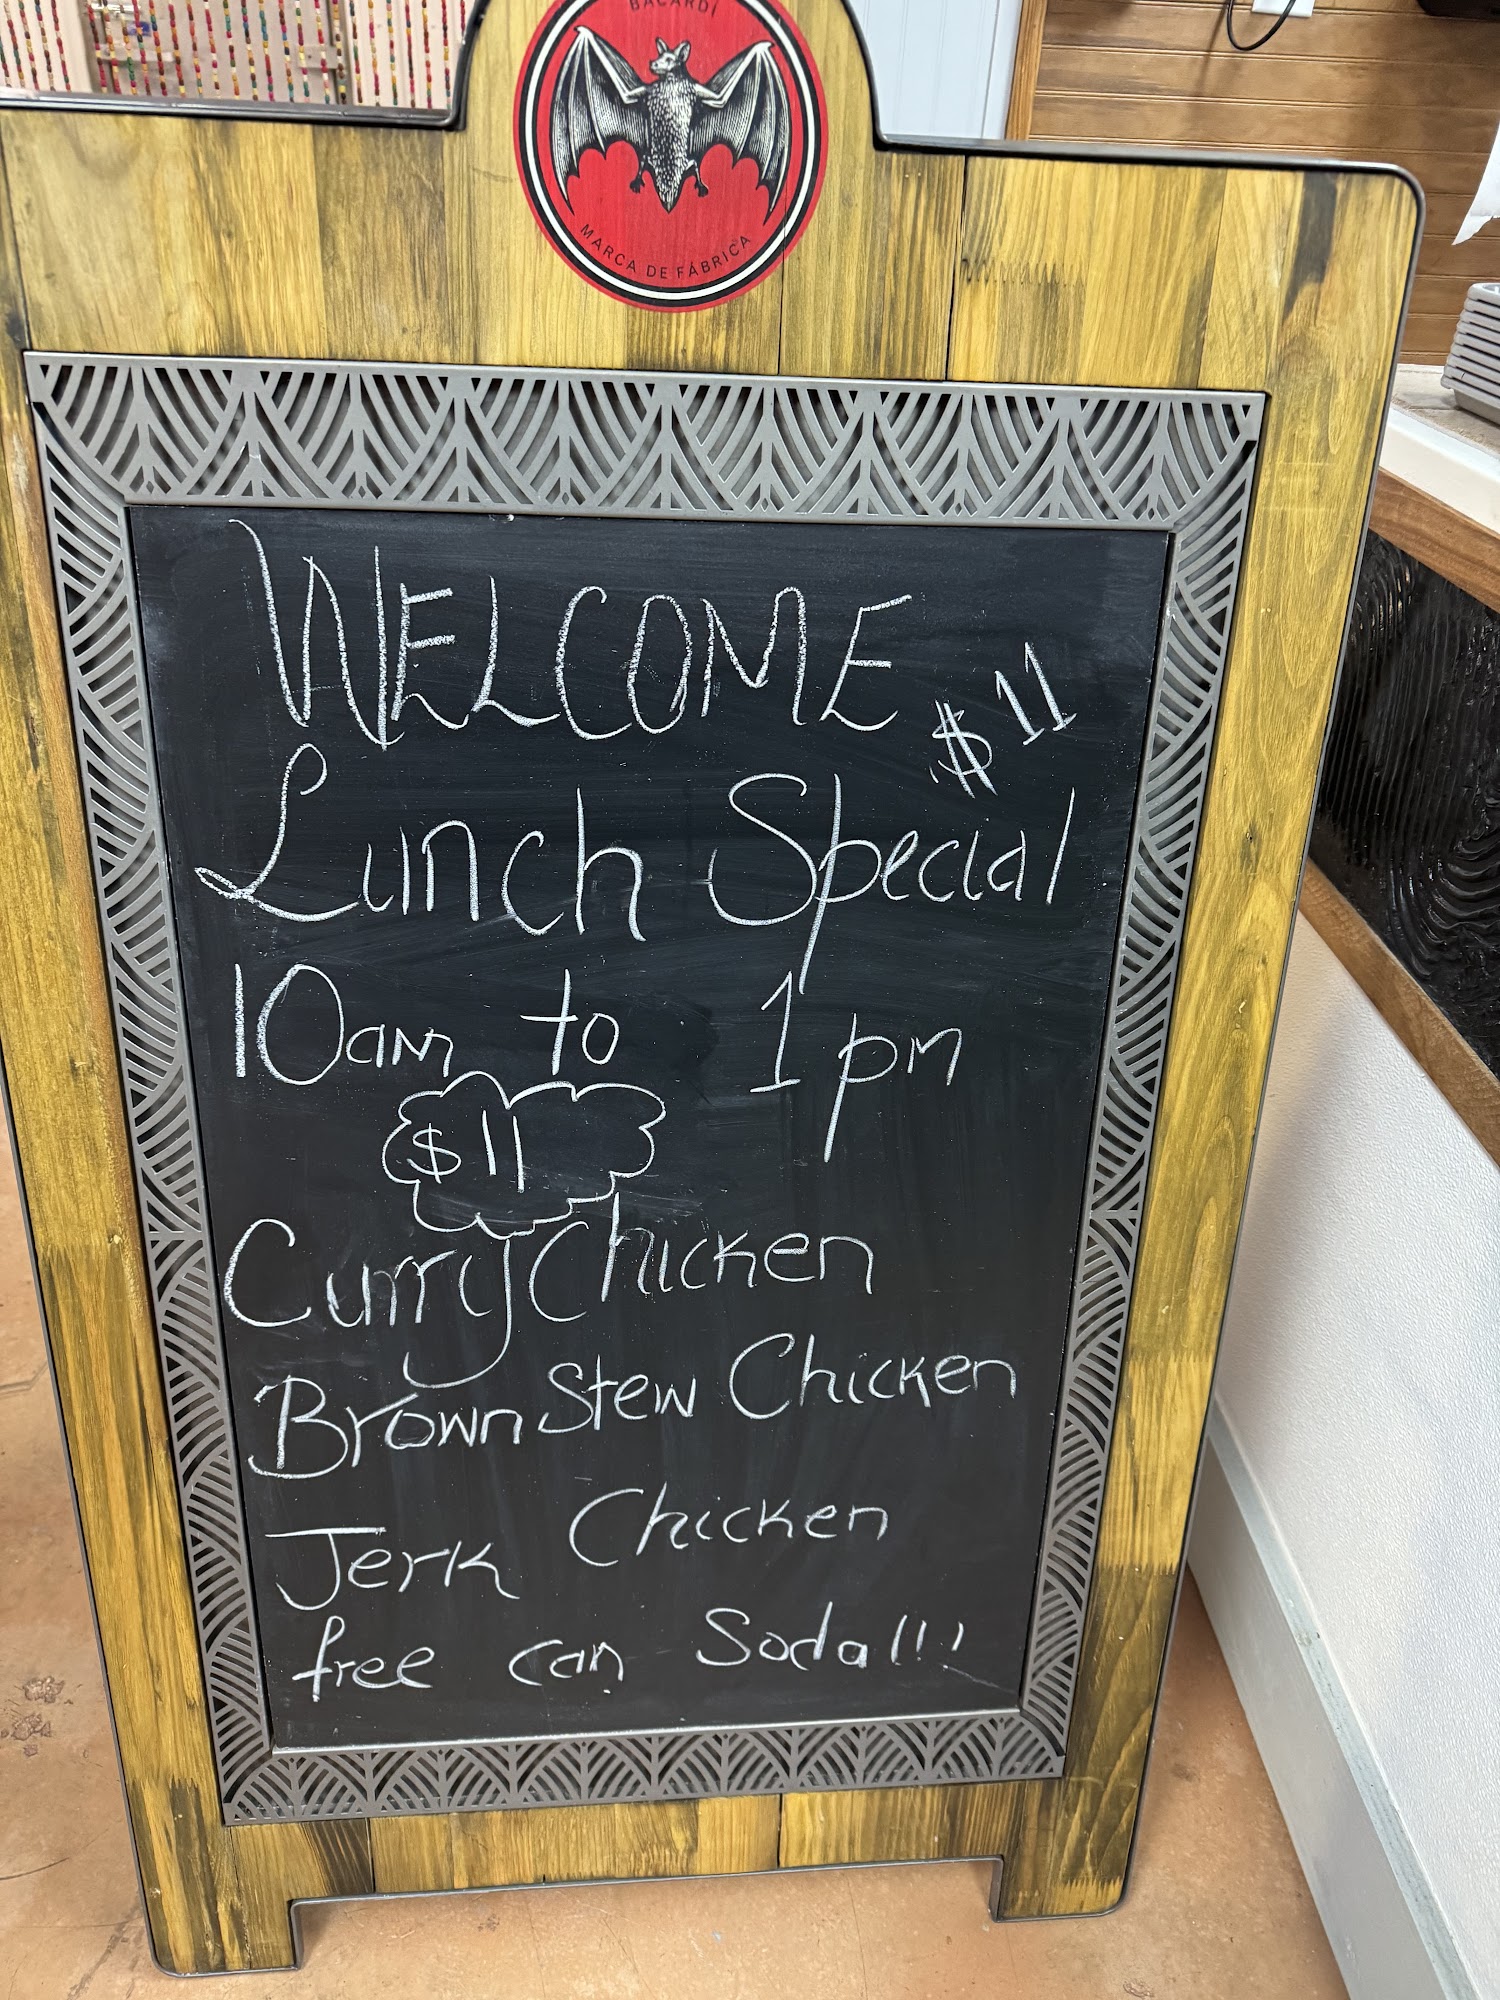 BACARDÍ
MARCA DE FÁBRICA
WELCOME
$11
Lunch Special
10am to 1pm
$11
Curry Chicken
Brown Stew Chicken
Jerk Chicken
free can Soda!!!